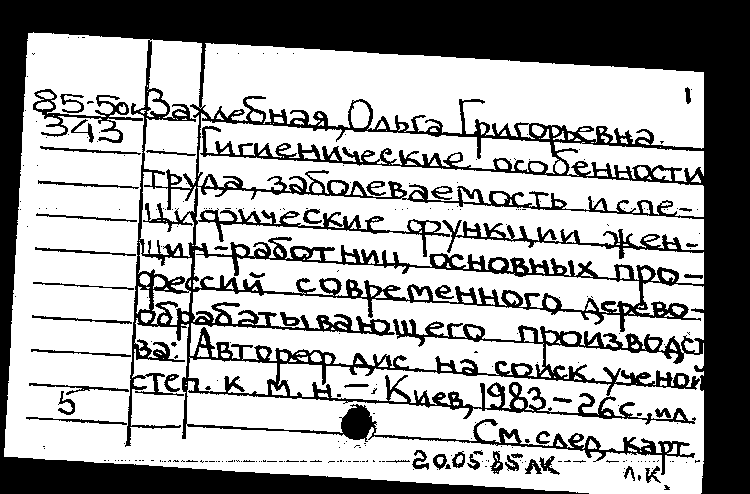 1
85-5ок Захлебная, Ольга Григорьевна.
343 Гигиенические особенности
труда, заболеваемость и спе-
цифические функции жен-
щин-работниц, основных про-
фессий современного дерево-
обрабатывающего производст
ва: Автореф дис. на соиск. ученой
степ. к. м. н. — Киев, 1983. — 26с., ил.
5
См. след. карт.
20.05 85 лк л.к.